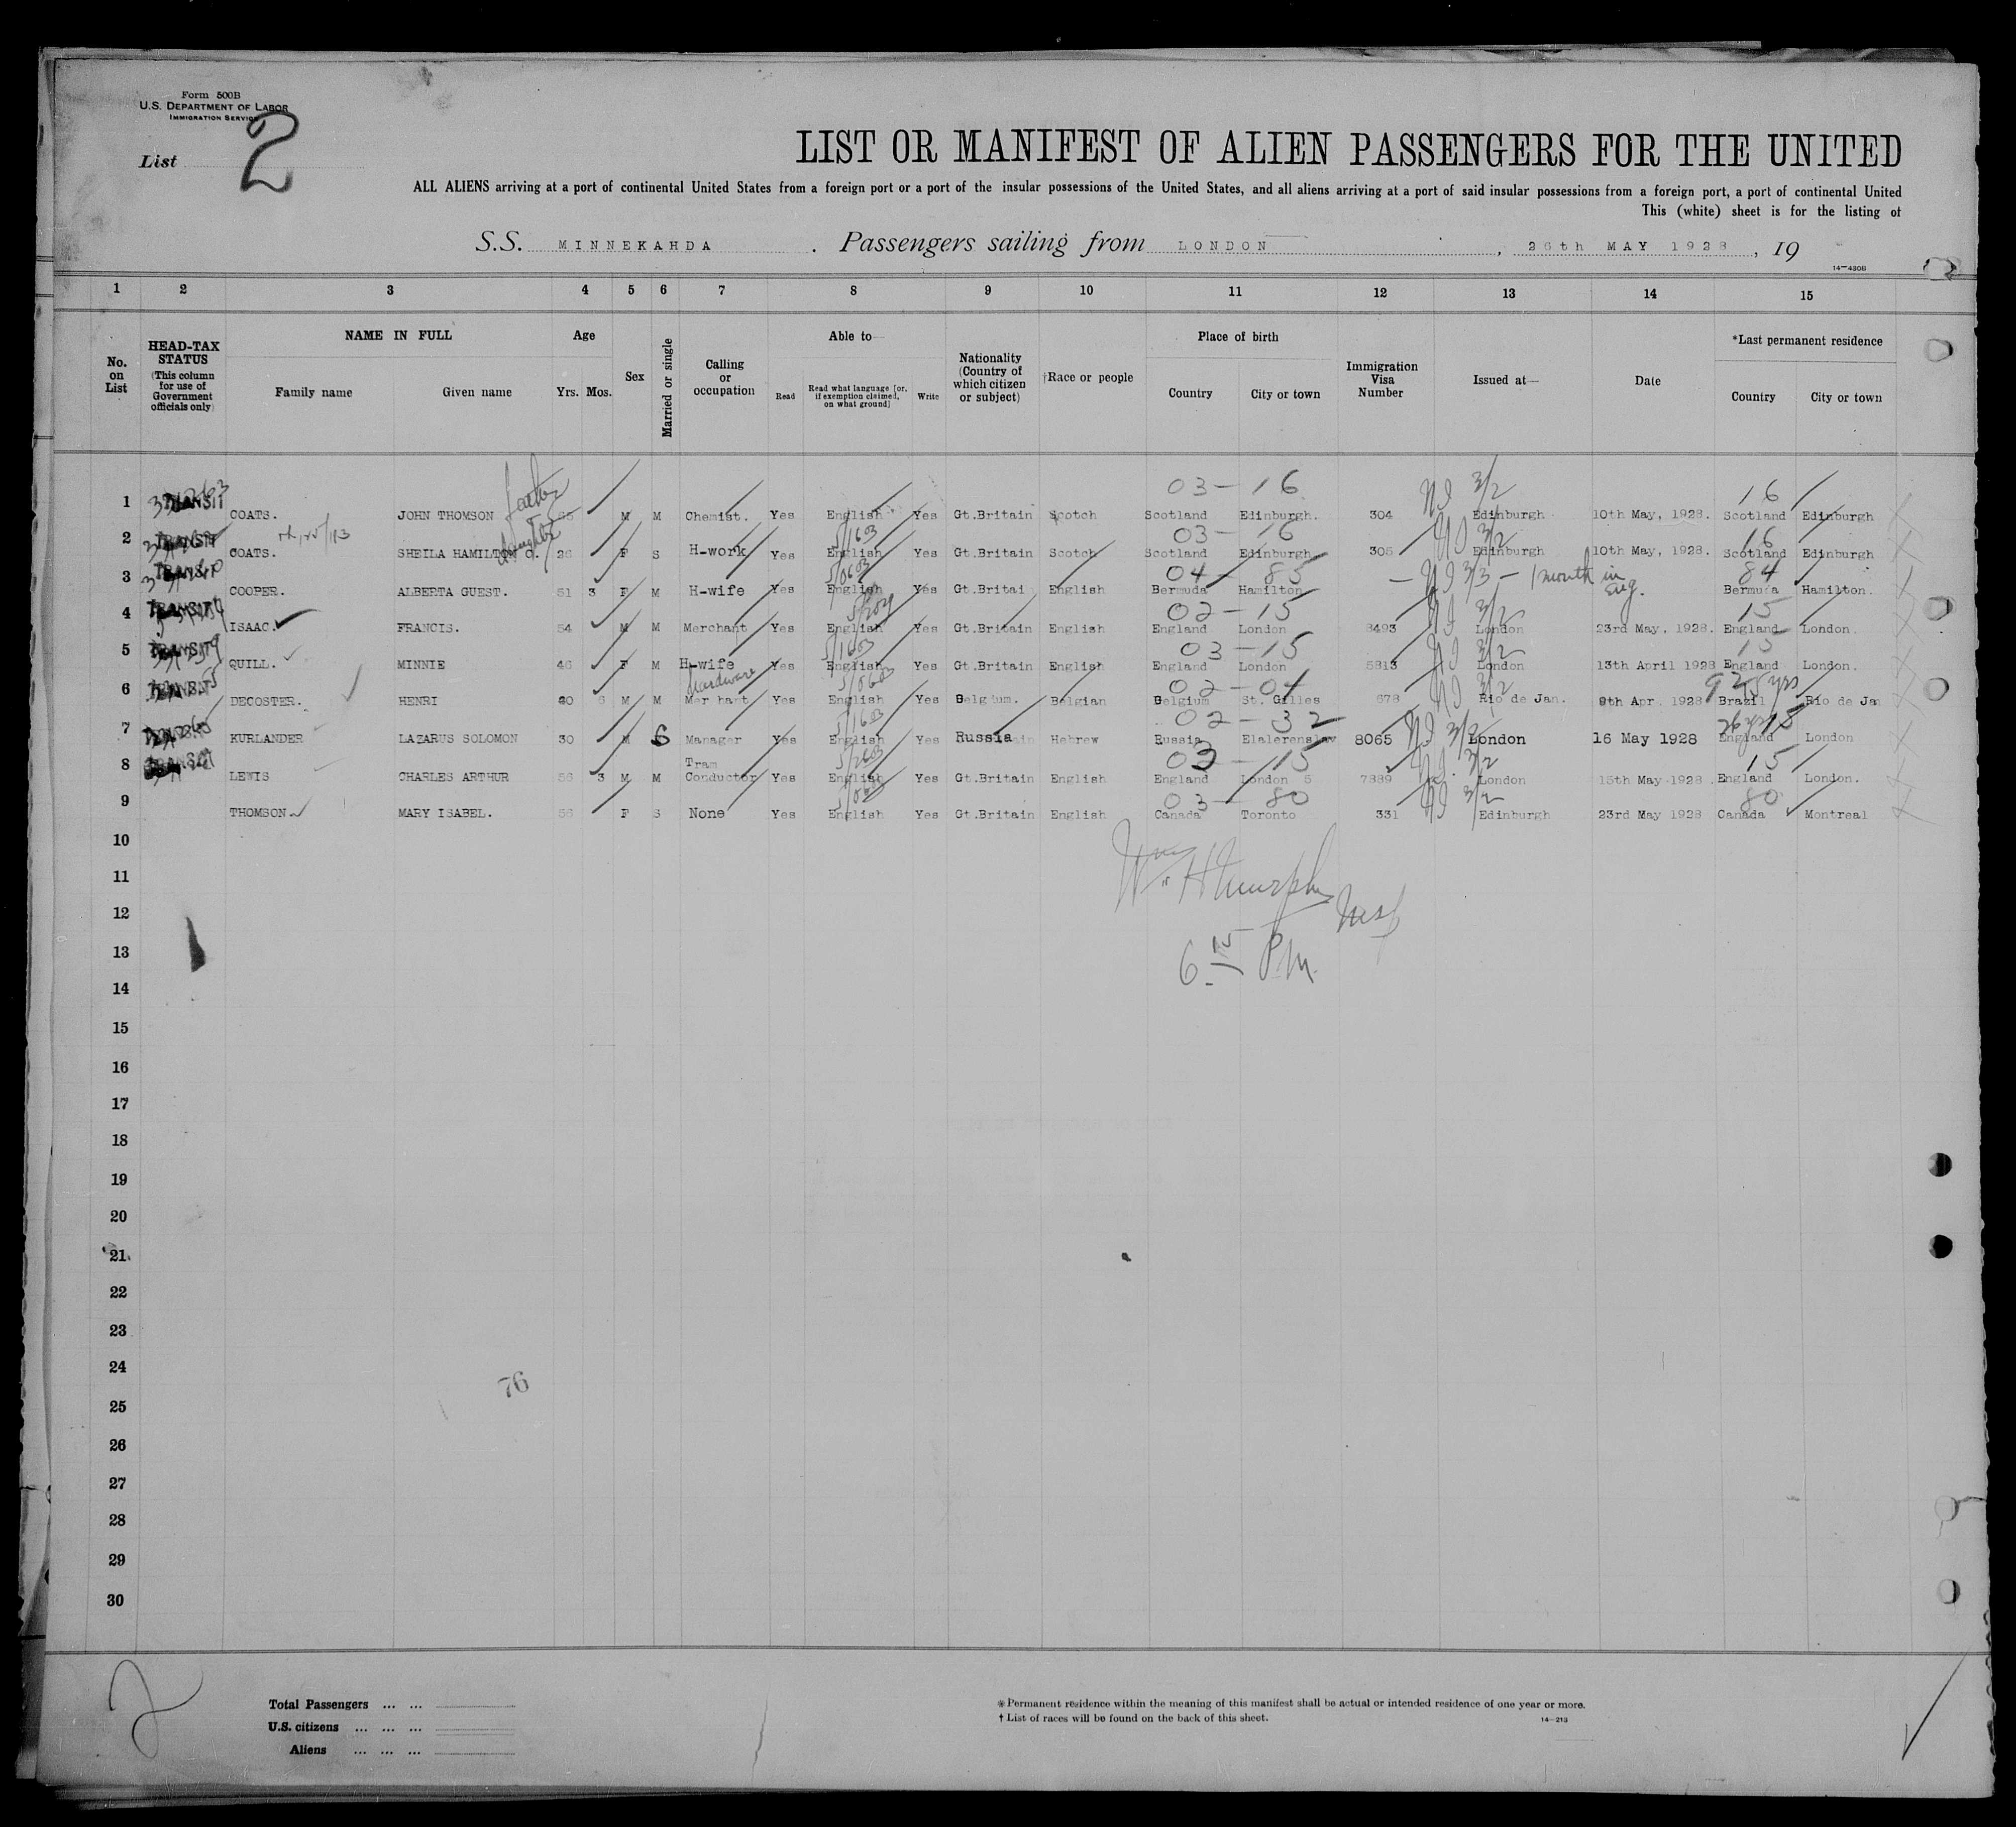 Form 500B
U.S. DEPARTMENT OF LABOR
IMMIGRATION SERVICE
List 2
LIST OR MANIFEST OF ALIEN PASSENGERS FOR THE UNITED
ALL ALIENS arriving at a port of continental United States from a foreign port or a port of the insular possessions of the United States, and all aliens arriving at a port of said insular possessions from a foreign port, a port of continental United
This (white) sheet is for the listing of
S.S. MINNEKAHDA . Passengers sailing from LONDON , 26th MAY 1928 , 19
14-430B
1 2 3 4 5 6 7 8 9 10 11 12 13 14 15
No. on List
HEAD-TAX STATUS (This column for use of Government officials only)
NAME IN FULL
Family name Given name
Age
Yrs. Mos.
Sex
Married or single
Calling or occupation
Able to—
Read
Read what language [or, if exemption claimed, on what ground]
Write
Nationality (Country of which citizen or subject)
†Race or people
Place of birth
Country City or town
Immigration Visa Number
Issued at—
Date
*Last permanent residence
Country City or town
father 03-16 NI 3/2 16
1 TRANSIT COATS. JOHN THOMSON M M Chemist. Yes English Yes Gt.Britain Scotch Scotland Edinburgh. 304 Edinburgh 10th May, 1928. Scotland Edinburgh
daughter 5/1603 03-16 NI 3/2 16
2 TRANSIT COATS. SHEILA HAMILTON C. 26 F S H-work Yes English Yes Gt.Britain Scotch Scotland Edinburgh 305 Edinburgh 10th May, 1928. Scotland Edinburgh
5/0603 04-85 — NI 3/3 — 1 month in Eng. 84
3 TRANSIT COOPER. ALBERTA GUEST. 51 3 F M H-wife Yes English Yes Gt.Britai English Bermuda Hamilton Bermuda Hamilton.
02-15 NI 3/2 15
4 TRANSIT ISAAC. FRANCIS. 54 M M Merchant Yes English Yes Gt.Britain English England London 8493 London 23rd May, 1928. England London.
5/1603 03-15 NI 3/2 15
5 TRANSIT QUILL. MINNIE 46 F M H-wife Yes English Yes Gt.Britain English England London 5813 London 13th April 1928 England London.
hardware 5/0603 02-04 NI 3/2 9 yrs
6 TRANSIT DECOSTER. HENRI 40 6 M M Mer hant Yes English Yes Belgium. Belgian Belgium St. Gilles 678 Rio de Jan. 9th Apr. 1928 Brazil Rio de Ja
5/1603 02-32 NI 3/2 26 yrs 15
7 KURLANDER LAZARUS SOLOMON 30 M S Manager Yes English Yes Russia Hebrew Russia Elalerenslaw 8065 London 16 May 1928 England London
5/2603 03-15 NI 3/2 15
8 TRANSIT LEWIS CHARLES ARTHUR 56 3 M M Tram Conductor Yes English Yes Gt.Britain English England London 7889 London 15th May 1928 England London.
03-80 NI 3/2 80
9 THOMSON. MARY ISABEL. 56 F S None Yes English Yes Gt.Britain English Canada Toronto 331 Edinburgh 23rd May 1928 Canada Montreal
10
Wm H Murphy
11
12 Insp
13 6 15 PM.
14
15
16
17
18
19
20
21
22
23
24
76
25
26
27
28
29
30
2
Total Passengers ... ...
U.S. citizens ... ... ...
Aliens ... ... ...
* Permanent residence within the meaning of this manifest shall be actual or intended residence of one year or more.
† List of races will be found on the back of this sheet.
14-213